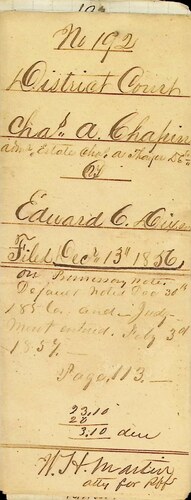 No 192
District Court
Chas. A. Chapin
adm. Estate Chas. A. Thayer
vs
Edward C.
Filed Decr 13th 1856
on Promissory Note
Default Noted Dec 30th
185 and Judg-
ment entered. Feby 3rd
1857.
Page 113
23.10
20
3.10 due
W. H. Martin
atty for Plff